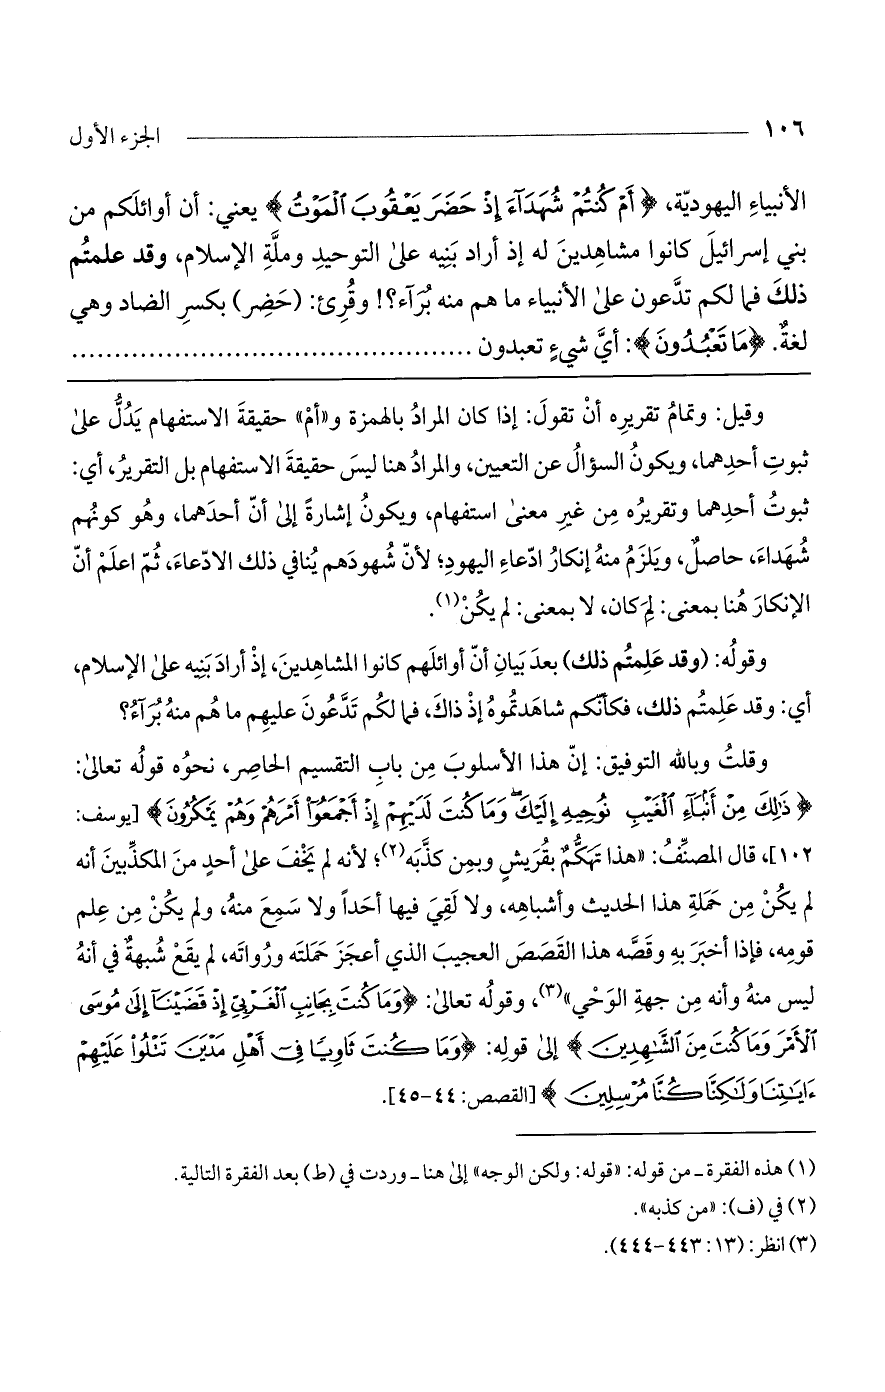 ١٠٦ ـــــــــــــــــــــــــــــــــــــــــــ الجزء الأول
الأنبياءِ اليهوديّة، ﴿أَمْ كُنتُمْ شُهَدَآءَ إِذْ حَضَرَ يَعْقُوبَ ٱلْمَوْتُ﴾ يعني: أن أوائلَكم من
بني إسرائيلَ كانوا مشاهِدينَ له إذ أراد بَنِيه علىٰ التوحيدِ وملَّةِ الإسلام، وقد علمتُم
ذلكَ فما لكم تدَّعون علىٰ الأنبياء ما هم منه بُرَآء؟! وقُرِئ: (حَضِر) بكسرِ الضاد وهي
لغةٌ. ﴿مَا تَعْبُدُونَ﴾: أيَّ شيءٍ تعبدون ...............................................
وقيل: وتمامُ تقريرِه أنْ تقولَ: إذا كان المرادُ بالهمزة و«أمْ» حقيقةَ الاستفهام يَدُلُّ علىٰ
ثبوتِ أحدِهما، ويكونُ السؤالُ عن التعيين، والمرادُ هنا ليسَ حقيقةَ الاستفهام بل التقريرُ، أي:
ثبوتُ أحدِهما وتقريرُه مِن غيرِ معنىٰ استفهام، ويكونُ إشارةً إلىٰ أنّ أحدَهما، وهُو كونُهم
شُهَداءَ، حاصلٌ، ويَلزَمُ منهُ إنكارُ ادّعاءِ اليهودِ؛ لأنّ شُهودَهم يُنافي ذلك الادّعاءَ، ثُمّ اعلَمْ أنّ
الإنكارَ هُنا بمعنى: لِمَ كان، لا بمعنى: لم يكُنْ(١).
وقولُه: (وقد عَلِمتُم ذلك) بعدَ بيَانِ أنّ أوائلَهم كانوا المشاهِدينَ، إذْ أرادَ بَنِيه علىٰ الإسلام،
أي: وقد عَلِمتُم ذلك، فكأنّكم شاهَدتُموهُ إذْ ذاكَ، فما لكُم تَدَّعُونَ عليهِم ما هُم منهُ بُرَآءُ؟
وقلتُ وبالله التوفيق: إنّ هذا الأسلوبَ مِن بابِ التقسيم الحاصِر، نحوُه قولُه تعالىٰ:
﴿ذَٰلِكَ مِنْ أَنۢبَآءِ ٱلْغَيْبِ نُوحِيهِ إِلَيْكَ ۖ وَمَا كُنتَ لَدَيْهِمْ إِذْ أَجْمَعُوٓا۟ أَمْرَهُمْ وَهُمْ يَمْكُرُونَ﴾ [يوسف:
١٠٢]، قال المصنِّفُ: «هذا تهكُّمٌ بقُريشٍ وبمِن كذَّبَه(٢)؛ لأنه لم يَخْفَ علىٰ أحدٍ منَ المكذِّبينَ أنه
لم يكُنْ مِن حَمَلةِ هذا الحديث وأشباهِه، ولا لَقِيَ فيها أحَداً ولا سَمِعَ منهُ، ولم يكُنْ مِن عِلم
قومِه، فإذا أخبَرَ بهِ وقصَّه هذا القَصَصَ العجيبَ الذي أعجَزَ حَمَلتَه ورُواتَه، لم يقَعْ شُبهةٌ في أنهُ
ليس منهُ وأنه مِن جهةِ الوَحْي»(٣)، وقولُه تعالىٰ: ﴿وَمَا كُنتَ بِجَانِبِ ٱلْغَرْبِيِّ إِذْ قَضَيْنَآ إِلَىٰ مُوسَى
ٱلْأَمْرَ وَمَا كُنتَ مِنَ ٱلشَّٰهِدِينَ﴾ إلىٰ قولِه: ﴿وَمَا كُنتَ ثَاوِيًا فِىٓ أَهْلِ مَدْيَنَ تَتْلُوا۟ عَلَيْهِمْ
ءَايَٰتِنَا وَلَٰكِنَّا كُنَّا مُرْسِلِينَ﴾ [القصص: ٤٤-٤٥].
(١) هذه الفقرة ـ من قوله: «قوله: ولكن الوجه» إلىٰ هنا ـ وردت في (ط) بعد الفقرة التالية.
(٢) في (ف): «من كذبه».
(٣) انظر: (١٣: ٤٤٣-٤٤٤).